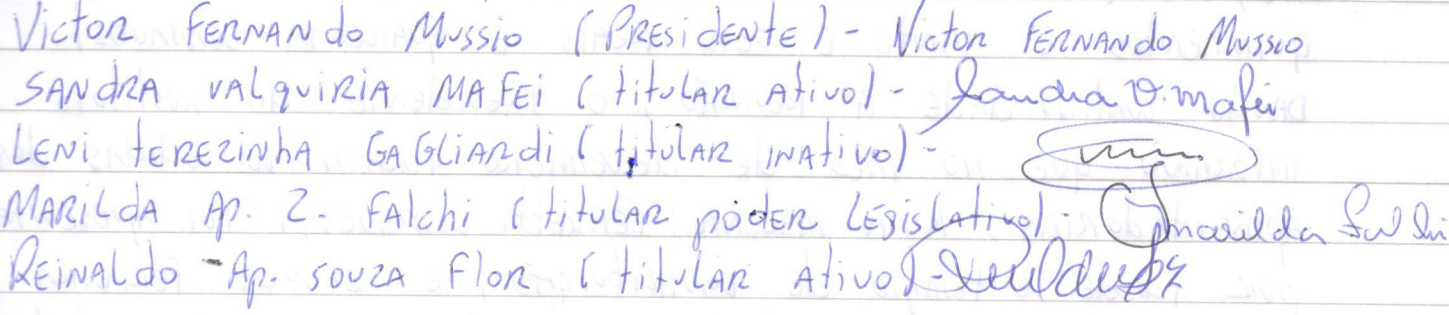 Victor Fernando Mussio (Presidente) - Victor Fernando Mussio
Sandra Valquiria Mafei (titular ativo) - Sandra V. Mafei
Leni Terezinha Gagliardi (titular inativo) -
Marilda Ap. Z. Falchi (titular poder legislativo) - Marilda Falchi
Reinaldo Ap. Souza Flor (titular ativo) -